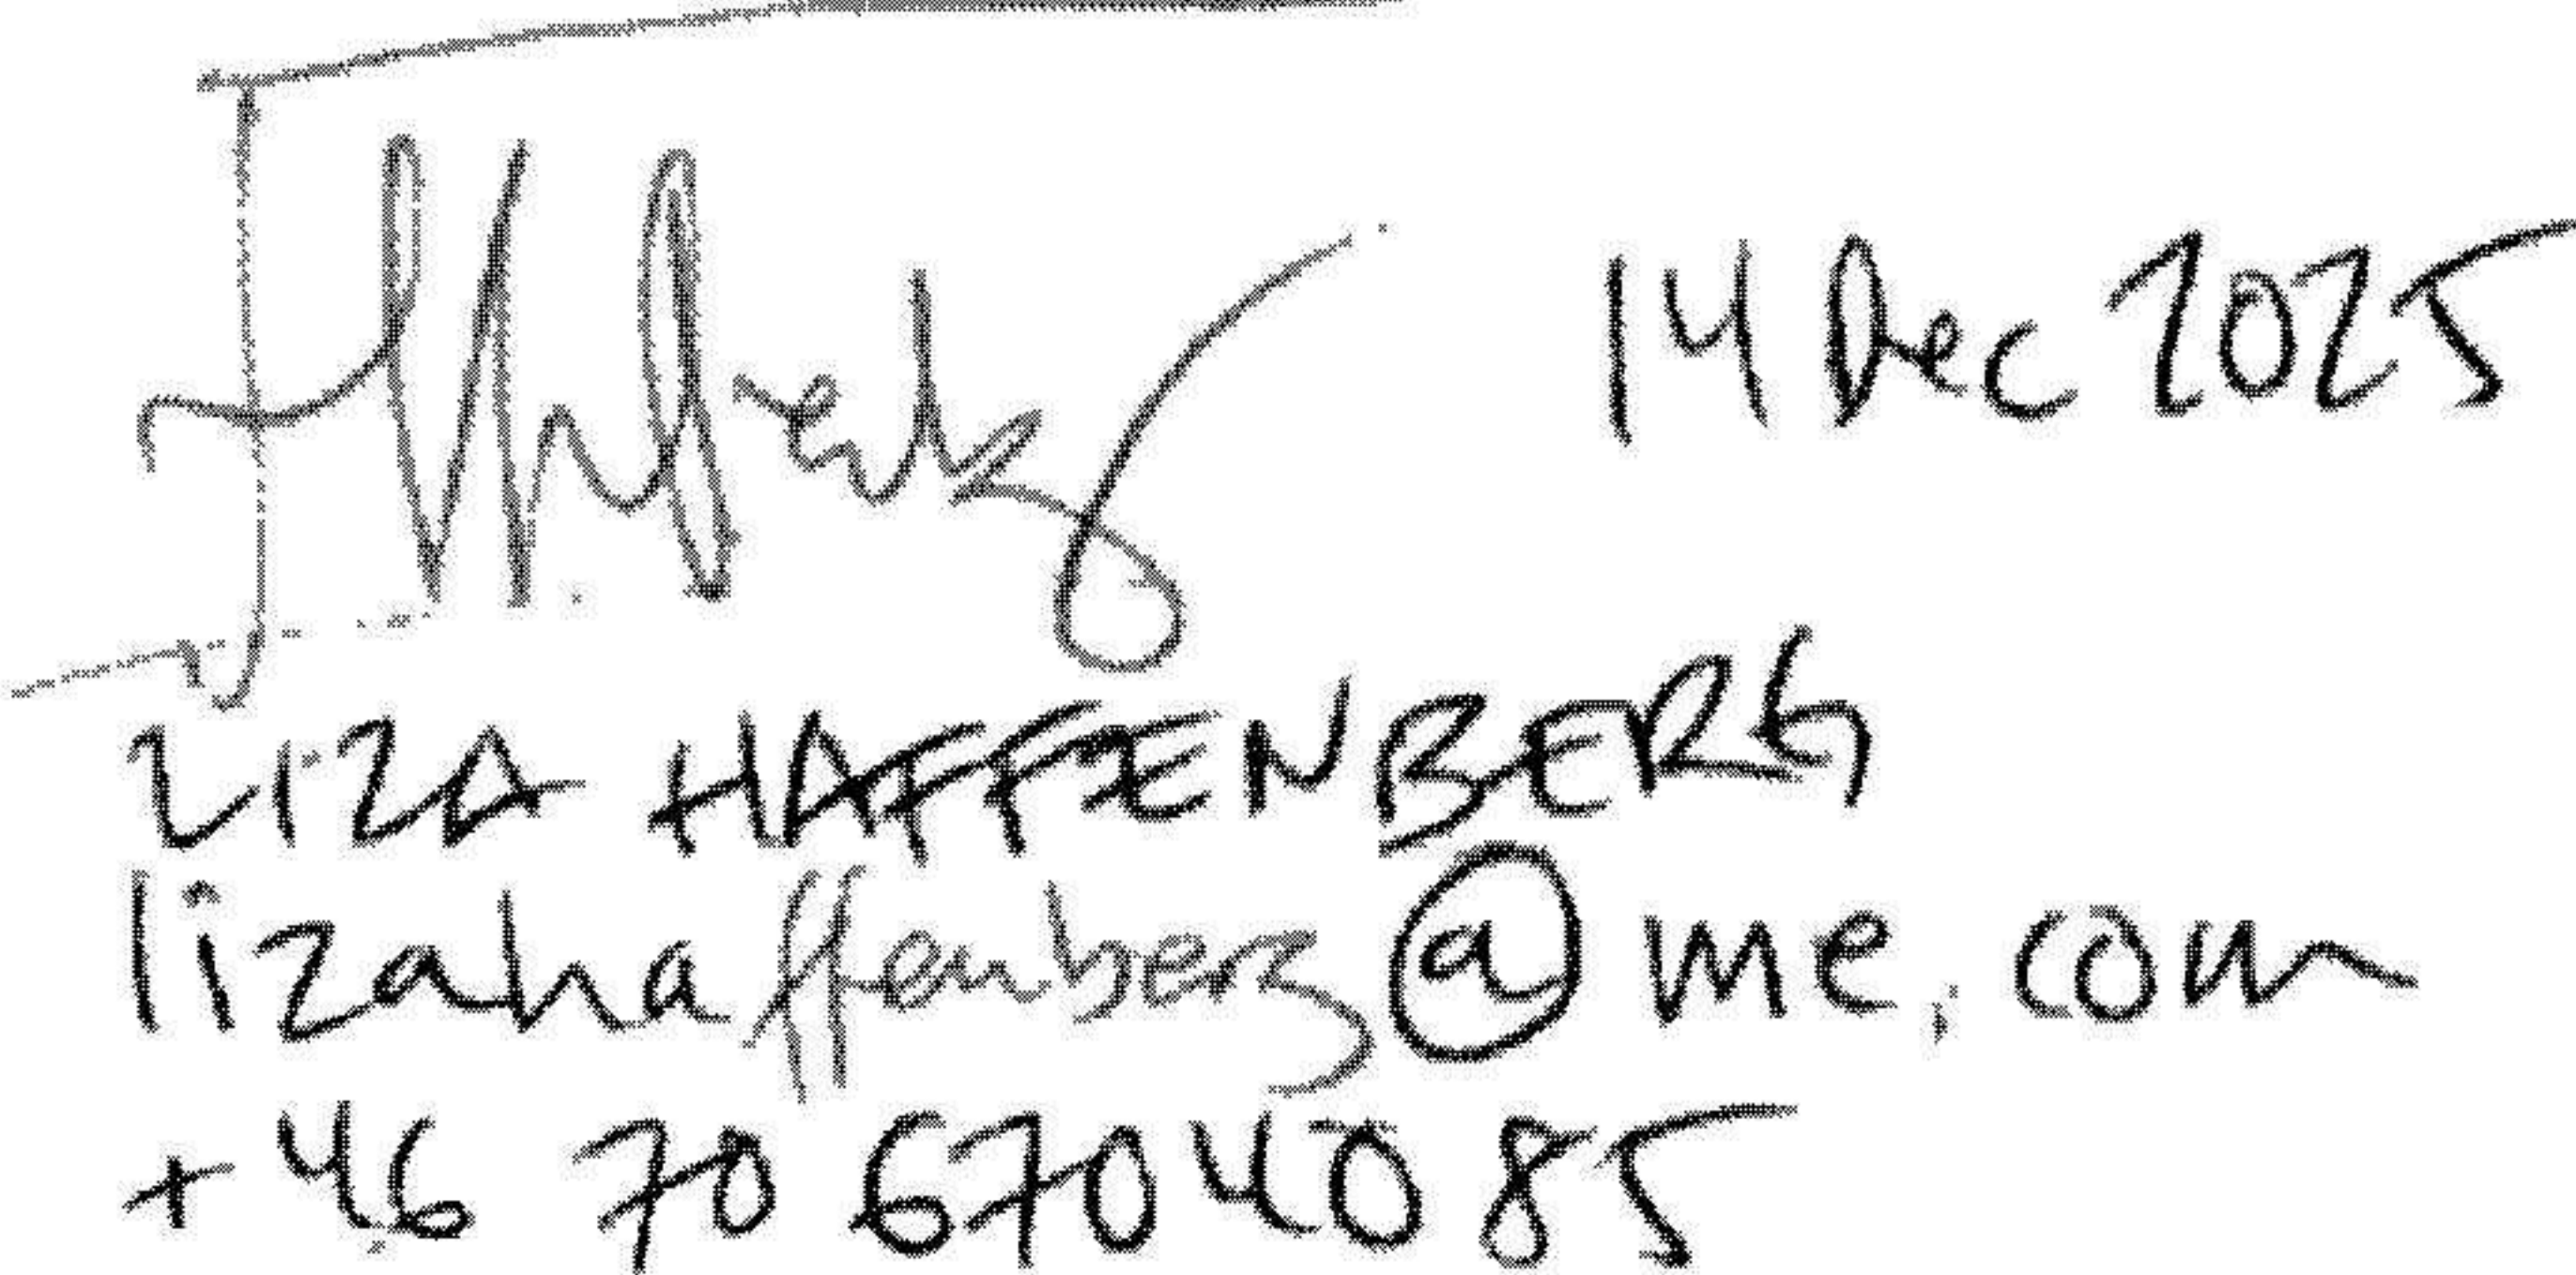 14 Dec 2025
LIZA HAFFENBERG
lizahaffenberg@me.com
+46 70 670 40 85